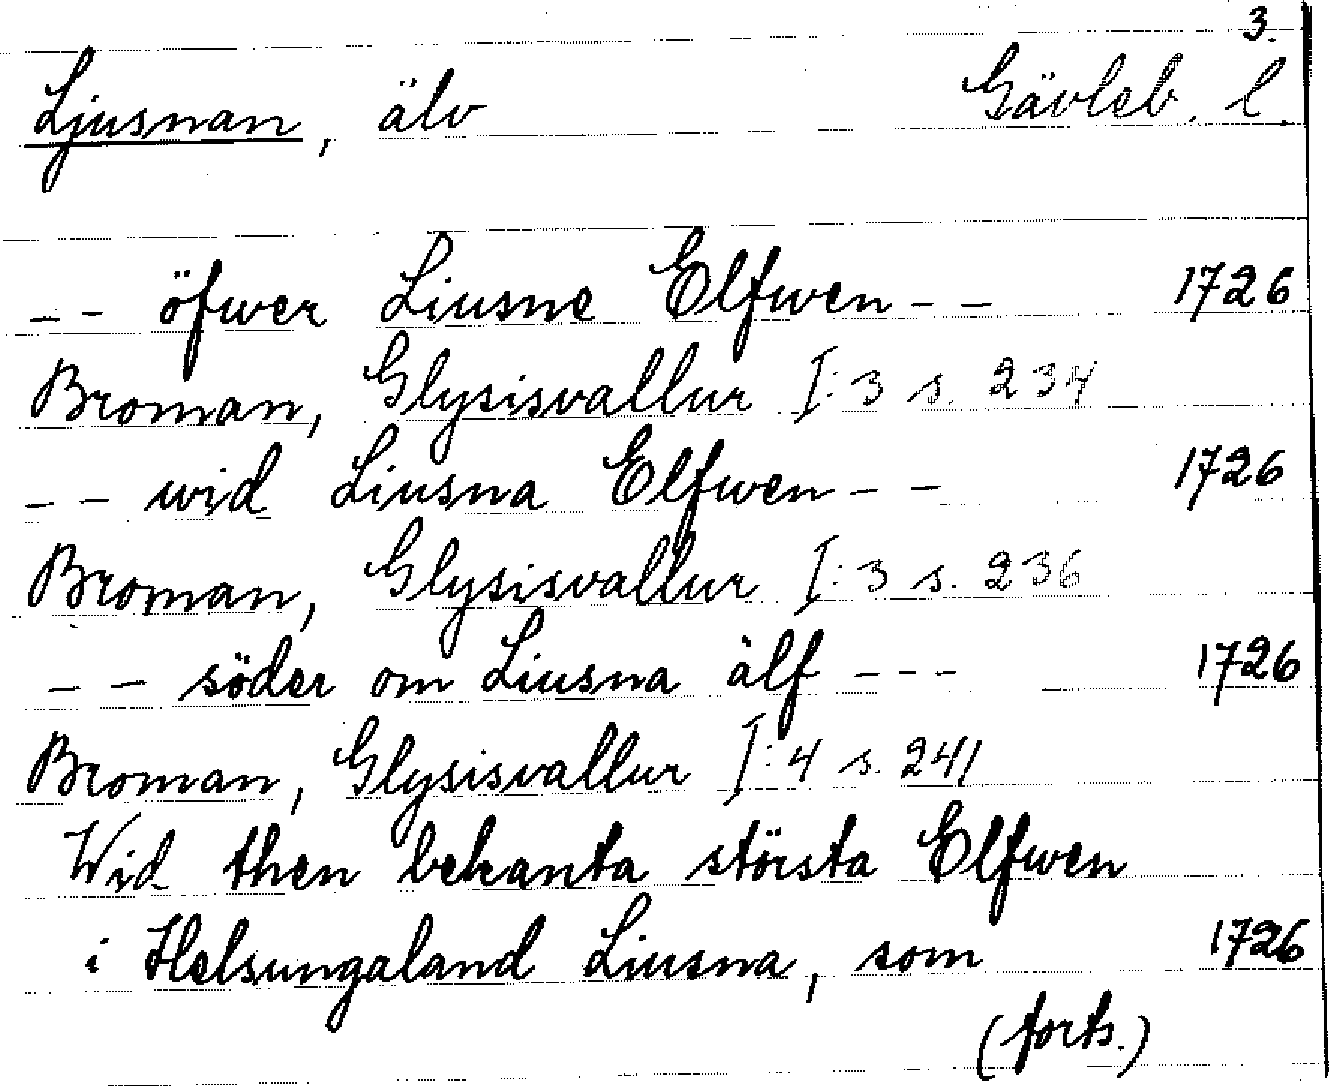 3.
Ljusnan, älv Gävleb. l.
-- öfwer Liusne Elfwen -- 1726
Broman, Glysisvallur I:3 s. 234
-- wid Liusna Elfwen -- 1726
Broman, Glysisvallur I:3 s. 236
-- söder om Liusna älf --- 1726
Broman, Glysisvallur I:4 s. 241
Wid then bekanta största Elfwen
i Helsungaland Liusna, som 1726
(forts.)